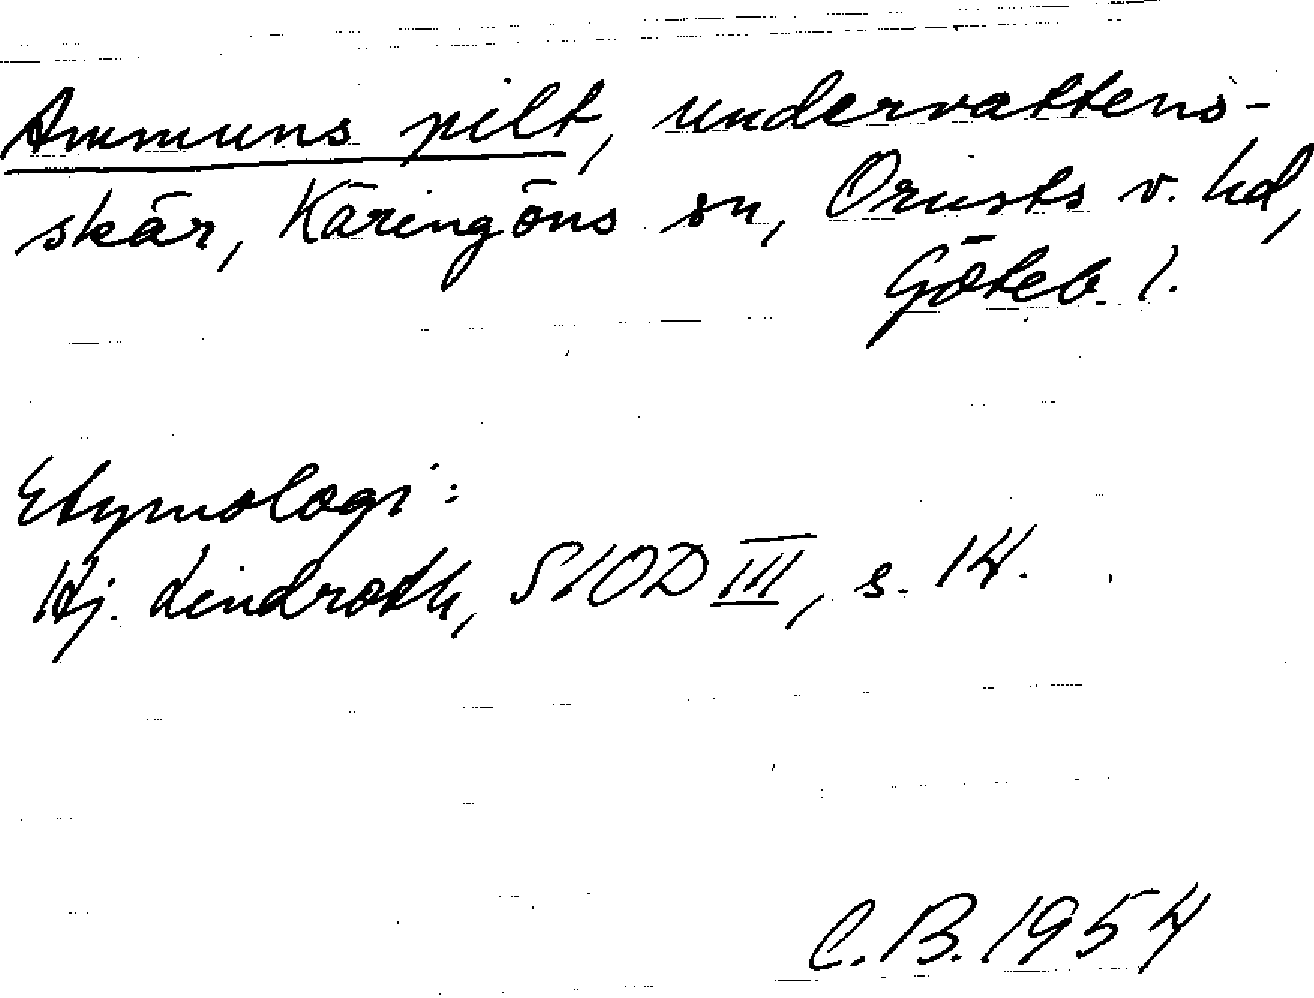 Ammuns pilt, undervattens-
skär, Käringöns sn, Orusts v. hd,
Göteb. l.
Etymologi:
Hj. Lindroth, SIOD III, s. 14.
C.B. 1954